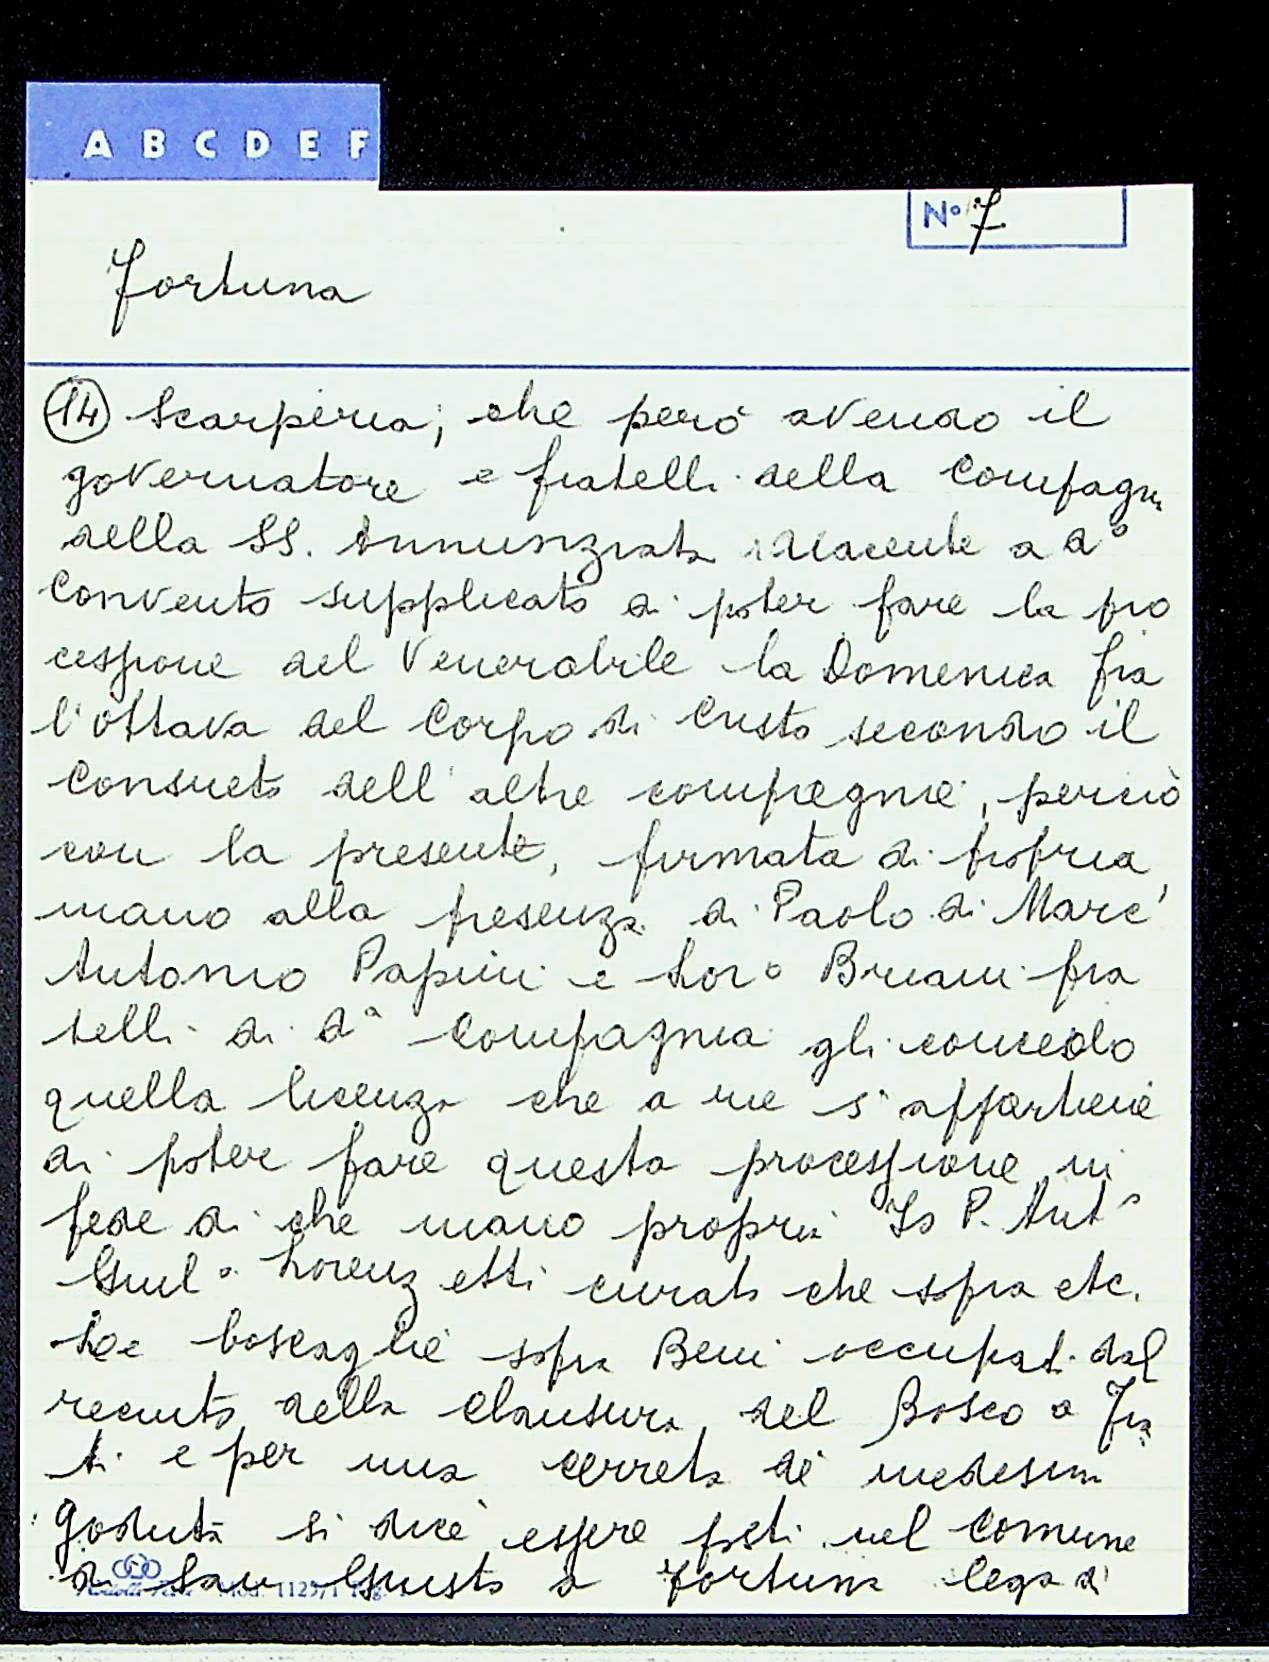 A B C D E F
No 7
Fortuna
(14) Scarperia; che però avendo il
governatore e fratelli della Compagn.
della SS. Annunziata adiacente a d°
Convento supplicato di poter fare la pro
cessione del Venerabile la Domenica fra
l'ottava del Corpo di Cristo secondo il
Consueto dell'altre compagnie, perciò
con la presente, firmata di propria
mano alla presenza di Paolo di Marc'
Antonio Papini e Lor° Bruani fra
telli di dª Compagnia gli concedo
quella licenza che a me s'appartiene
di poter fare questa processione in
fede di che mano propria Io P. Ant°
Giul° Lorenzetti curato che sopra etc.
boscaglie sopra Beni occupati dal
recinto della Clausura del Bosco a Fra
ti e per una cerreta de medesimi
goduta si dice essere posti nel Comune
di San Giusto a Fortuna lega di
Mod. 1129/1